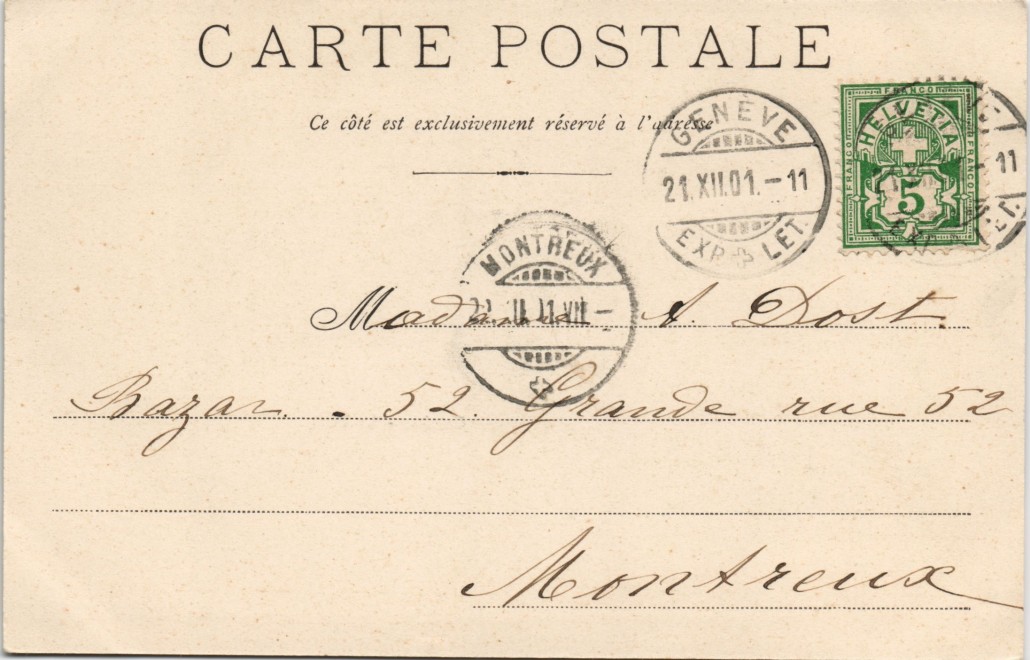 CARTE POSTALE
Ce côté est exclusivement réservé à l'adresse
GENÈVE
21.XII.01.-11
EXP. LET.
FRANCO
HELVETIA
FRANCO
FRANCO
5
11
MONTREUX
Madame A. Dost.
Bazar. - 52. Grande rue 52
Montreux